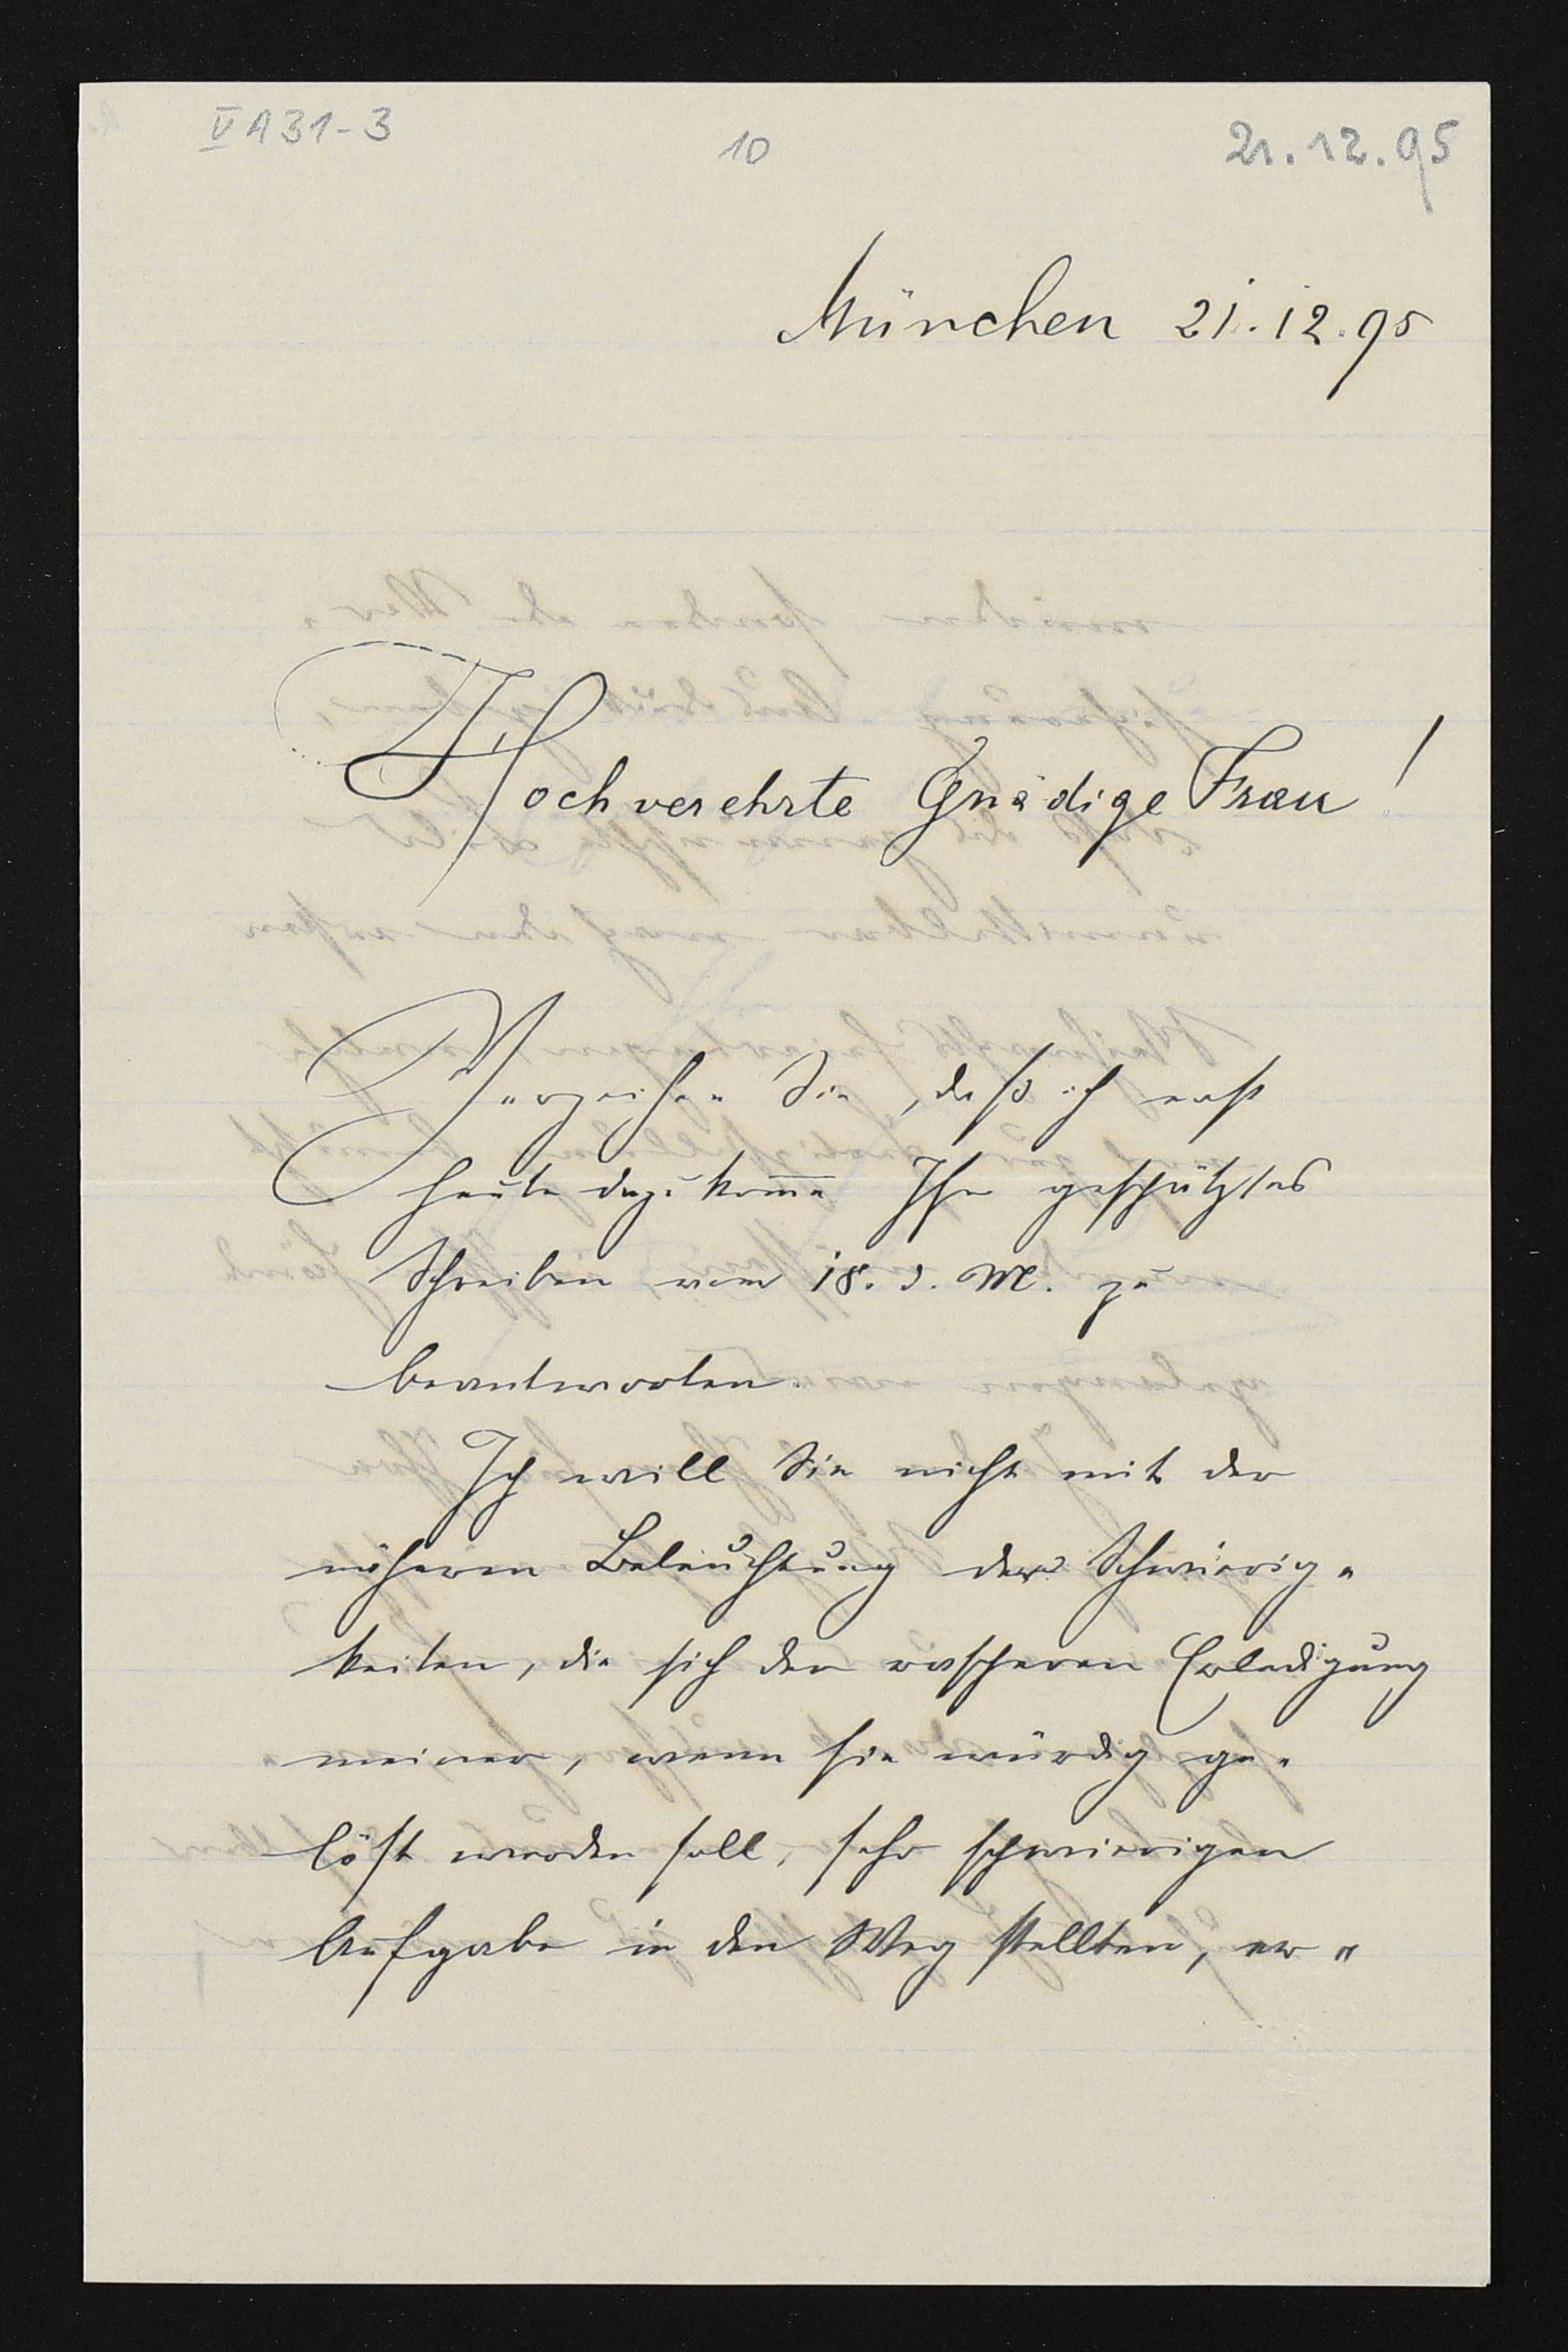 V A 31-3
10
21.12.95
München 21.12.95
Hochverehrte Gnädige Frau!
Verzeihen Sie, daß ich erst
heute dazu kom̅e Ihr geschätztes
Schreiben vom 18. d. M. zu
beantworten.
Ich will Sie nicht mit der
näheren Beleuchtung der Schwierig-
keiten, die sich der rascheren Erledigung
meiner, wenn sie würdig ge-
löst werden soll, sehr schwierigen
Aufgabe in den Weg stellten, er-